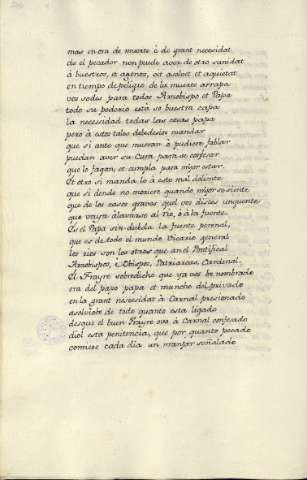 mas en ora de muerte ó de grant necesidat
do el pecador non puede aver de otro sanidat
à vuestros, et agenos, oit asolvet et aquetat
en tiempo de peligro do la muerte arrapa
vos sodes para todos Arzobispo et Papa
todo su poderio està so vuestra capa
la necesidad todas las cevas papa
pero à estos tales debedeslos mandar
que si ante que mueran si pudieren fablar
puedan aver su Cura para se confesar
que lo fagan, et cumpla para mejor estar.
Et otro si manda le à este mal doliente
que si dende no moriere quando mejor se siente
que de los casos graves que vos distes unguente
que vaya à lavarse al rio, ò à la fuente.
Es el Papa sin dubda la fuente perenal,
que es de todo el mundo Vicario general
los rios son los otros que an el Pontifical
Arzobispos, è Obispos, Patriarcas, Cardenal.
El Frayre sobredicho que ya vos he nombrado
era del papo papa et muncho del privado
en la grant necesidat à Carnal presionado
asolviole de todo quanto està ligado
desque el buen Frayre ovo à Carnal confesado
diol esta penitencia, que por quanto pecado
comiese cada dia un manjar señalado